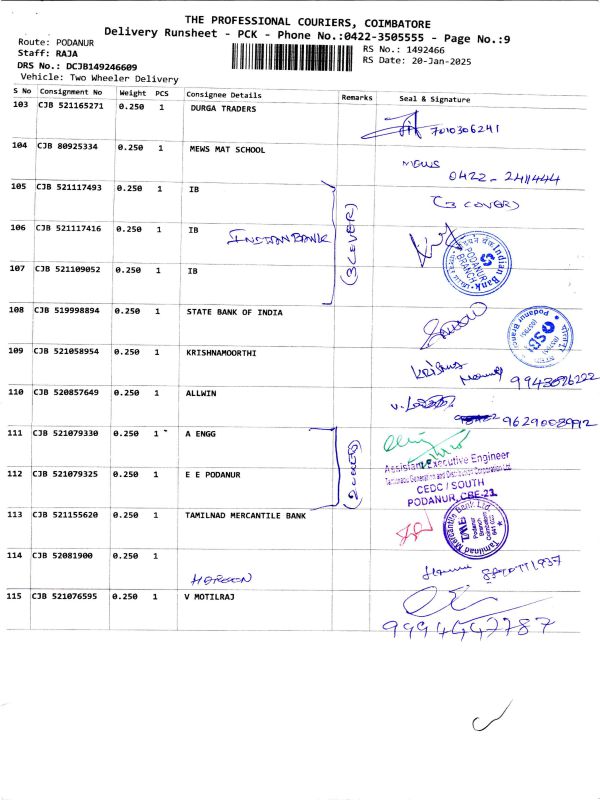 THE PROFESSIONAL COURIERS, COIMBATORE
Delivery Runsheet - PCK - Phone No.:0422-3505555 - Page No.:9
Route: PODANUR
RS No.: 1492466
Staff: RAJA
RS Date: 20-Jan-2025
DRS No.: DCJB149246609
Vehicle: Two Wheeler Delivery
S No Consignment No Weight PCS Consignee Details Remarks Seal & Signature
103 CJB 521165271 0.250 1 DURGA TRADERS 7010306241
104 CJB 80925334 0.250 1 MEWS MAT SCHOOL
MEWS
0422 - 2411444
105 CJB 521117493 0.250 1 IB (3 COVER)
106 CJB 521117416 0.250 1 IB
INDIAN BANK (3 COVER)
Indian Bank PODANUR BRANCH
107 CJB 521109052 0.250 1 IB
108 CJB 519998894 0.250 1 STATE BANK OF INDIA
SBI Podanur Branch
109 CJB 521058954 0.250 1 KRISHNAMOORTHI
Krishna
110 CJB 520857649 0.250 1 ALLWIN
111 CJB 521079330 0.250 1 A ENGG
Assistant Executive Engineer
Tamilnadu Generation and Distribution Corporation Ltd
112 CJB 521079325 0.250 1 E E PODANUR
CEDC / SOUTH
PODANUR, CBE-23
113 CJB 521155620 0.250 1 TAMILNAD MERCANTILE BANK
Tamilnad Mercantile Bank Ltd. TMB Podanur Branch Coimbatore 641 023
114 CJB 52081900 0.250 1
115 CJB 521076595 0.250 1 V MOTILRAJ
9994447787